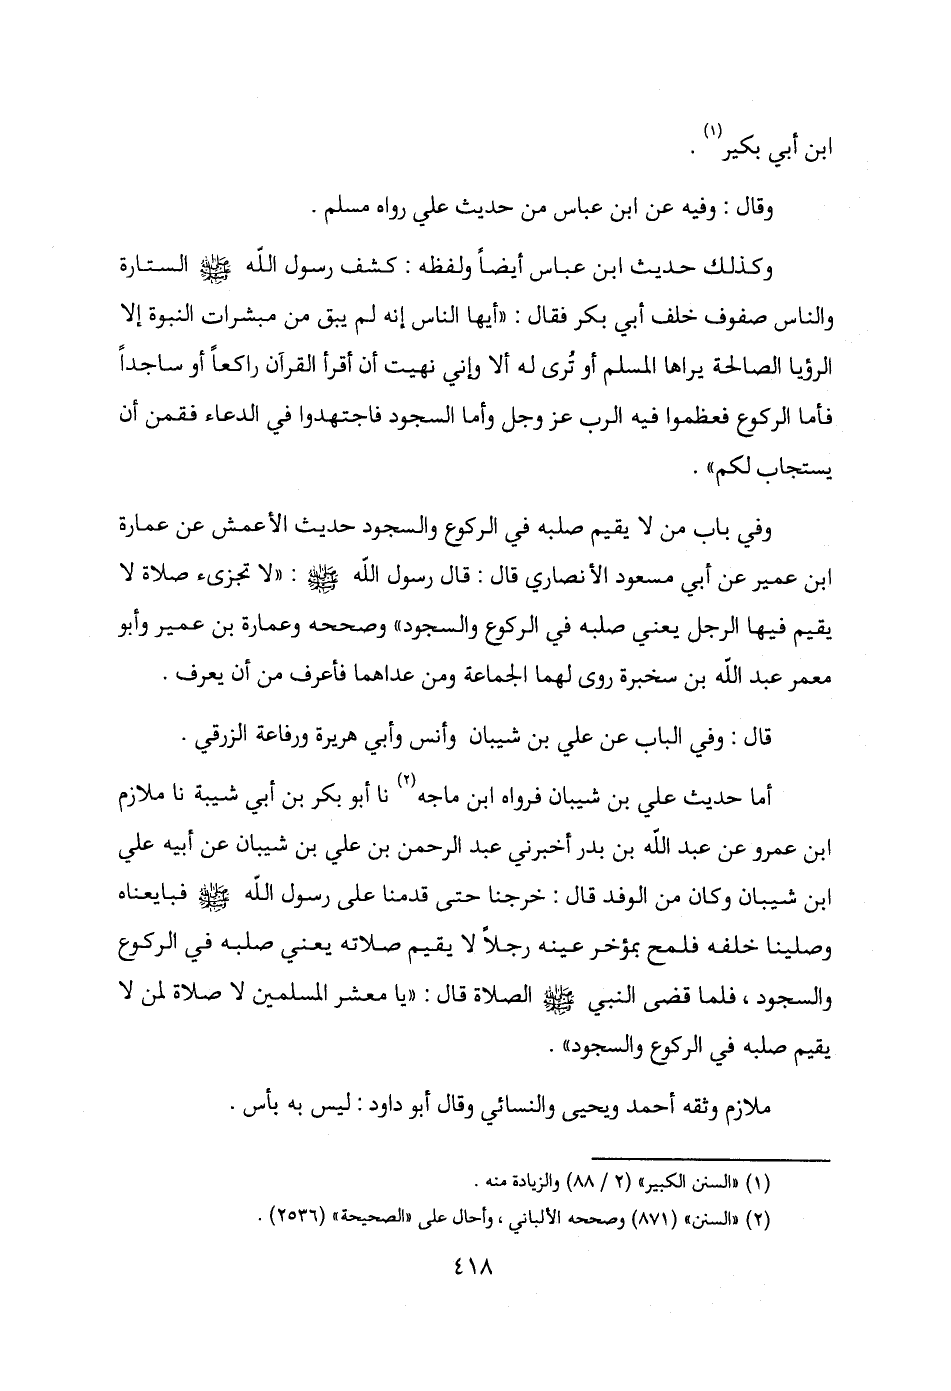 ابن أبي بكير(١) .
وقال : وفيه عن ابن عباس من حديث علي رواه مسلم .
وكذلك حديث ابن عباس أيضاً ولفظه : كشف رسول اللّه ﷺ الستارة
والناس صفوف خلف أبي بكر فقال : «أيها الناس إنه لم يبق من مبشرات النبوة إلا
الرؤيا الصالحة يراها المسلم أو تُرى له ألا وإني نهيت أن أقرأ القرآن راكعاً أو ساجداً
فأما الركوع فعظموا فيه الرب عز وجل وأما السجود فاجتهدوا في الدعاء فقمن أن
يستجاب لكم» .
وفي باب من لا يقيم صلبه في الركوع والسجود حديث الأعمش عن عمارة
ابن عمير عن أبي مسعود الأنصاري قال : قال رسول اللّه ﷺ : «لا تجزىء صلاة لا
يقيم فيها الرجل يعني صلبه في الركوع والسجود» وصححه وعمارة بن عمير وأبو
معمر عبد اللّه بن سخبرة روى لهما الجماعة ومن عداهما فأعرف من أن يعرف .
قال : وفي الباب عن علي بن شيبان وأنس وأبي هريرة ورفاعة الزرقي .
أما حديث علي بن شيبان فرواه ابن ماجه(٢) نا أبو بكر بن أبي شيبة نا ملازم
ابن عمرو عن عبد اللّه بن بدر أخبرني عبد الرحمن بن علي بن شيبان عن أبيه علي
ابن شيبان وكان من الوفد قال : خرجنا حتى قدمنا على رسول اللّه ﷺ فبايعناه
وصلينا خلفه فلمح بمؤخر عينه رجلاً لا يقيم صلاته يعني صلبه في الركوع
والسجود ، فلما قضى النبي ﷺ الصلاة قال : «يا معشر المسلمين لا صلاة لمن لا
يقيم صلبه في الركوع والسجود» .
ملازم وثقه أحمد ويحيى والنسائي وقال أبو داود : ليس به بأس .
(١) «السنن الكبير» (٢ / ٨٨) والزيادة منه .
(٢) «السنن» (٨٧١) وصححه الألباني ، وأحال على «الصحيحة» (٢٥٣٦) .
٤١٨